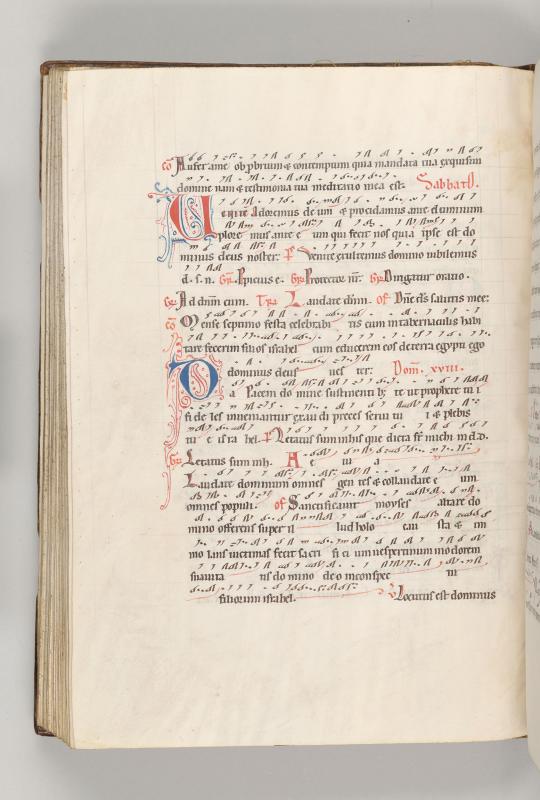 Co Aufer a me obprobrium & contemptum quia mandata tua exquisiui
domine nam & testimonia tua meditatio mea est. Sabbato.
Uenite Adoremus deum & procidamus ante dominum
plore mus ante e um qui fecit nos quia ipse est do
minus deus noster. Ps Venite exultemus domino iubilemus
d. s. n. Gr. Propicius e. Gr. Protector nr. Gr. Dirigatur oratio.
Gr. Ad dnm cum. Tra. Laudate dnm. Of Dne ds salutis mee:
Co Mense septimo festa celebrabi tis cum in tabernaculis habi
tare fecerim filios israhel cum educerem eos de terra egypti ego
dominus deus ues ter: Dom. xviii.
Da Pacem do mine sustinenti b; te ut prophete tu i
fi de les inueniantur exau di preces serui tu i & plebis
tu e isra hel. Ps Letatus sum in his que dicta st michi in d. d.
Gr Letatus sum in h. A e u a
Laudate dominum omnes gen tes & collaudate e um
omnes populi. Of Sanctificauit moyses altare do
mino offerens super il lud holo cau sta & im
mo lans uictimas fecit sacri fi ci um uespertinum in odorem
suauita tis do mino deo in conspec tu
filiorum israhel. V Locutus est dominus